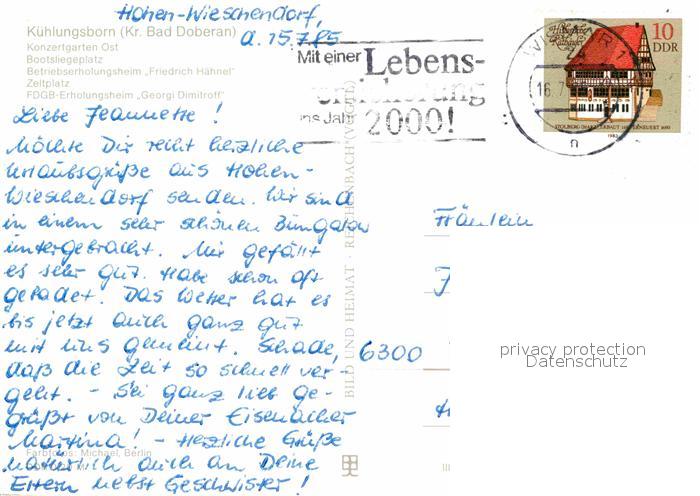 Hohen-Wieschendorf,
d. 15.7.85
Kühlungsborn (Kr. Bad Doberan)
Konzertgarten Ost
Bootsliegeplatz
Betriebserholungsheim „Friedrich Hähnel"
Zeltplatz
FDGB-Erholungsheim „Georgi Dimitroff"
Mit einer Lebens-
ins Jahr 2000!
10
DDR
1983
16.7
Liebe Jeannette!
Möchte Dir recht herzliche
Urlaubsgrüße aus Hohen-
Wieschendorf senden. Wir sind
in einem sehr schönen Bungalow
untergebracht. Mir gefällt
es sehr gut. Habe schon oft
gebadet. Das Wetter hat es
bis jetzt auch ganz gut
mit uns gemeint. Schade,
daß die Zeit so schnell ver-
geht. - Sei ganz lieb ge-
grüßt von Deiner Eisenacher
Martina! - Herzliche Grüße
natürlich auch an Deine
Eltern nebst Geschwister!
Farbfotos: Michael, Berlin
BILD UND HEIMAT · REICHENBACH (VOGTL)
Fräulein
6300
privacy protection
Datenschutz